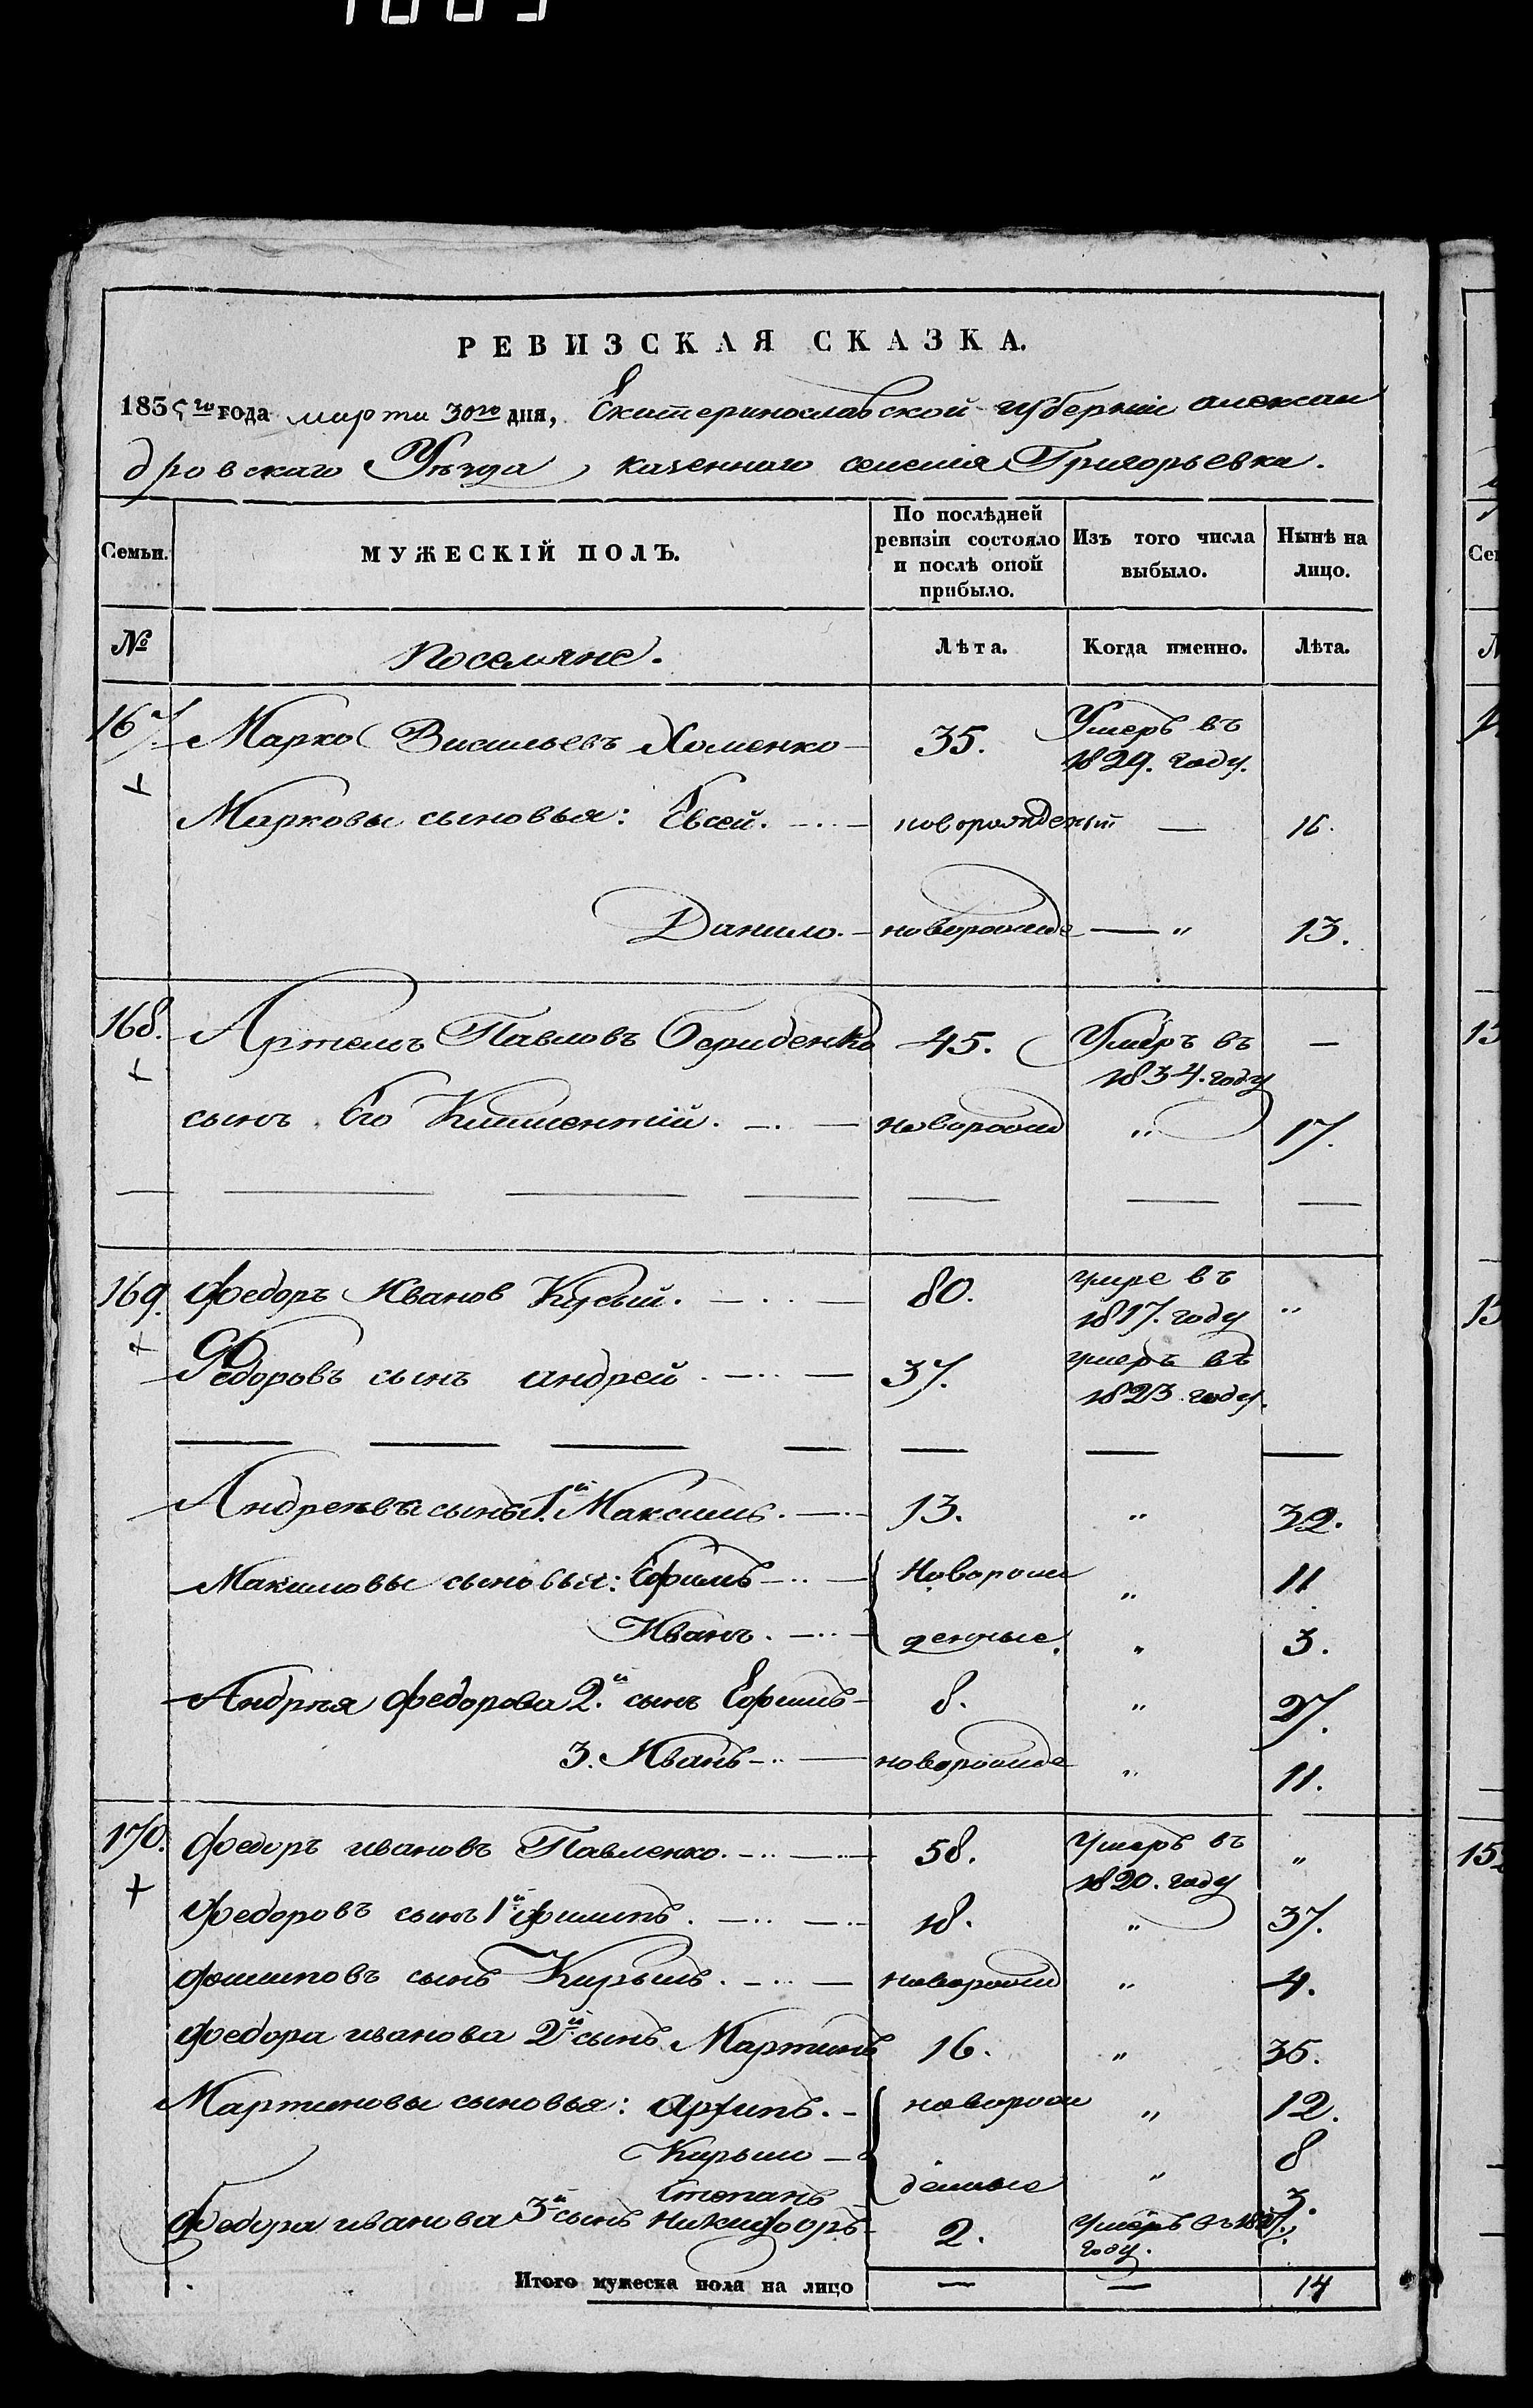 РЕВИЗСКАЯ СКАЗКА.
1835 го года марта 30го дня, Екатеринославской губерніи алексан
дровскаго Уѣзда, казеннаго селенія Григорьевка.
Семьи.
МУЖЕСКІЙ ПОЛЪ.
По послѣдней ревизіи состояло и послѣ оной прибыло.
Изъ того числа выбыло.
Нынѣ на лицо.
№ Поселяне. Лѣта. Когда именно. Лѣта.
167. Марко Васильевъ Хоменко 35. Умеръ въ 1829. году.
Марковы сыновья: Евсей. новорожденый — 16.
Данило. новорожде — " 13.
168. Артемъ Павловъ 45. Умеръ въ 1834. году —
сынъ Его Климентій. новорожд " 17.
169. Федоръ Иванов 80. умре въ 1817. году "
Федоровъ сынъ андрей 37. умеръ въ 1823. году.
Андреевъ сынъ 1й Максимъ. 13. " 32.
Максимовы сыновья: Ефимъ Новорож " 11
Иванъ. денные. " 3.
Андрѣя Федорова 2й сынъ Ефимъ 8. " 27.
3. Иванъ новорожде " 11.
170. Федоръ ивановъ Павленко. 58. Умеръ въ 1820. году "
Федоровъ сынъ 1й филипъ. 18. " 37.
филиповъ сынъ Кирылъ. новорожд " 4.
Федора иванова 2й сынъ Мартинъ 16. " 35.
Мартиновы сыновья: архипъ. новорож " 12.
Кирыло 8
Степанъ денные " 3.
Федора иванова 3й сынъ никифоръ 2. Умеръ въ году.
Итого мужеска пола на лицо — — 14